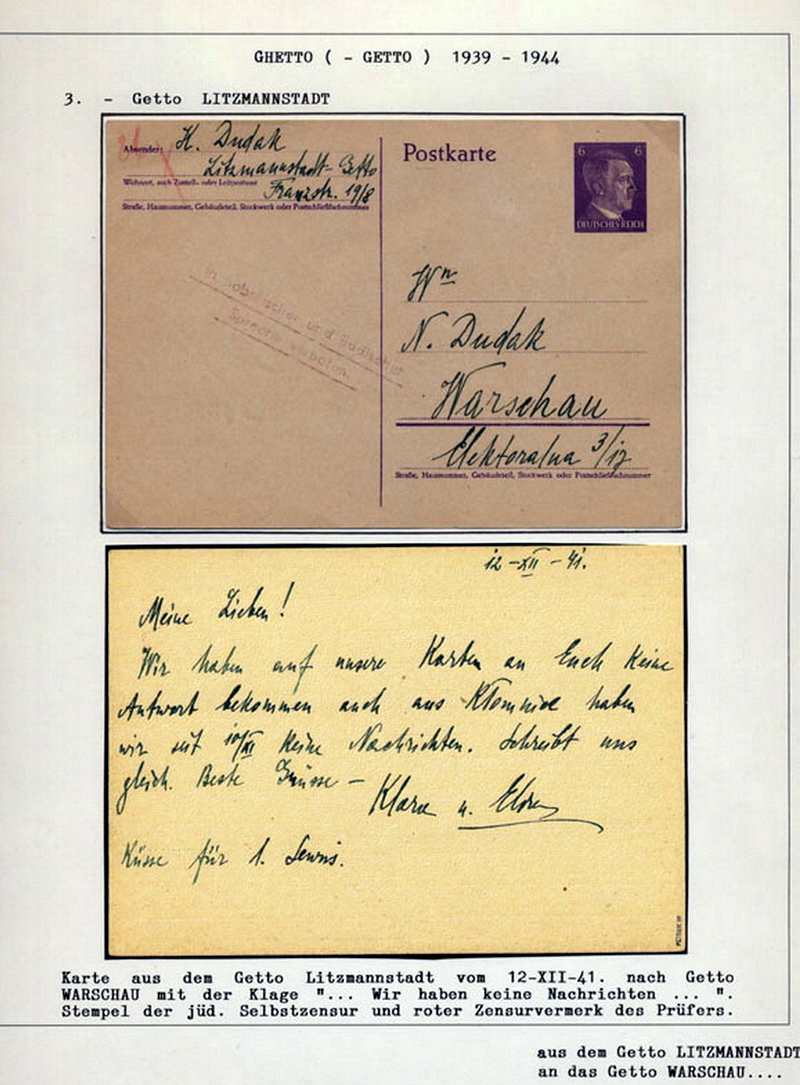 GHETTO ( - GETTO ) 1939 - 1944
3. - Getto LITZMANNSTADT
Absender: K. Dudak
Litzmannstadt-Getto
Wohnort, auch Zustell- oder Leitpostamt
Franzstr. 19/8
Straße, Hausnummer, Gebäudeteil, Stockwerk oder Postschließfachnummer
Postkarte
6 6
DEUTSCHES REICH
in und jüdischer
Sprache
N. Dudak
Warschau
Elektoralna 3/17
Straße, Hausnummer, Gebäudeteil, Stockwerk oder Postschließfachnummer
12-XII-41.
Meine Lieben!
Wir haben auf unsere Karten an Euch keine
Antwort bekommen auch aus haben
wir seit 10/XI keine Nachrichten. Schreibt uns
gleich. Beste Grüsse -
Klara u.
Küsse für
Karte aus dem Getto Litzmannstadt vom 12-XII-41. nach Getto
WARSCHAU mit der Klage "... Wir haben keine Nachrichten ... ".
Stempel der jüd. Selbstzensur und roter Zensurvermerk des Prüfers.
aus dem Getto LITZMANNSTADT
an das Getto WARSCHAU....